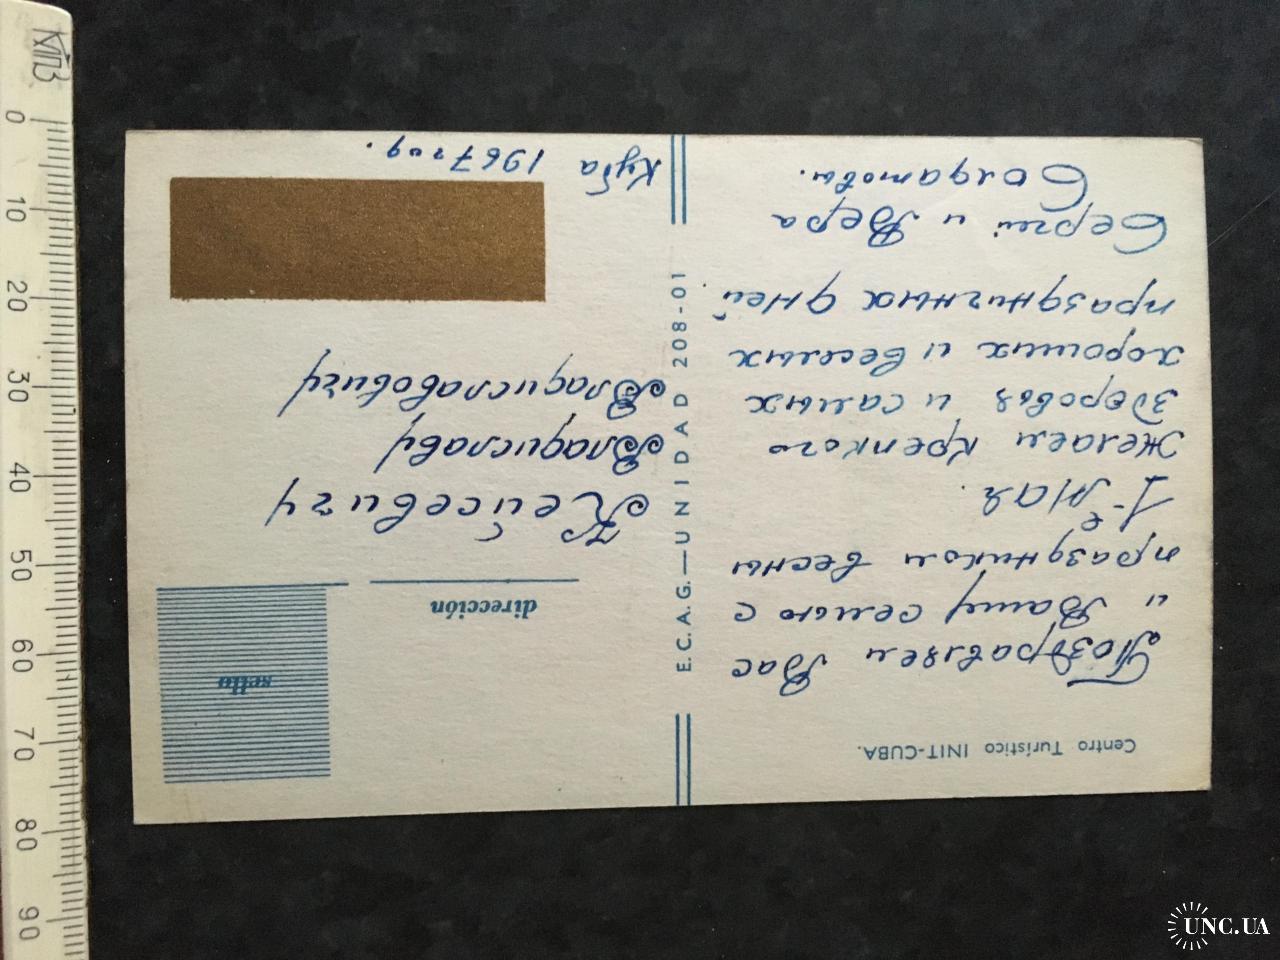 Centro Turístico INIT-CUBA.
Поздравляем Вас
и Вашу семью с
праздником весны
1-е мая.
Желаем крепкого
здоровья и самых
хороших и веселых
праздничных дней
Сергей и Вера
Солдатовы.
E.C.A.G.—UNIDAD 208-01
sello
dirección
Кейсевичу
Владиславу
Владиславовичу
Куба 1967 год.
0
10
20
30
40
50
60
70
80
90
UNC.UA